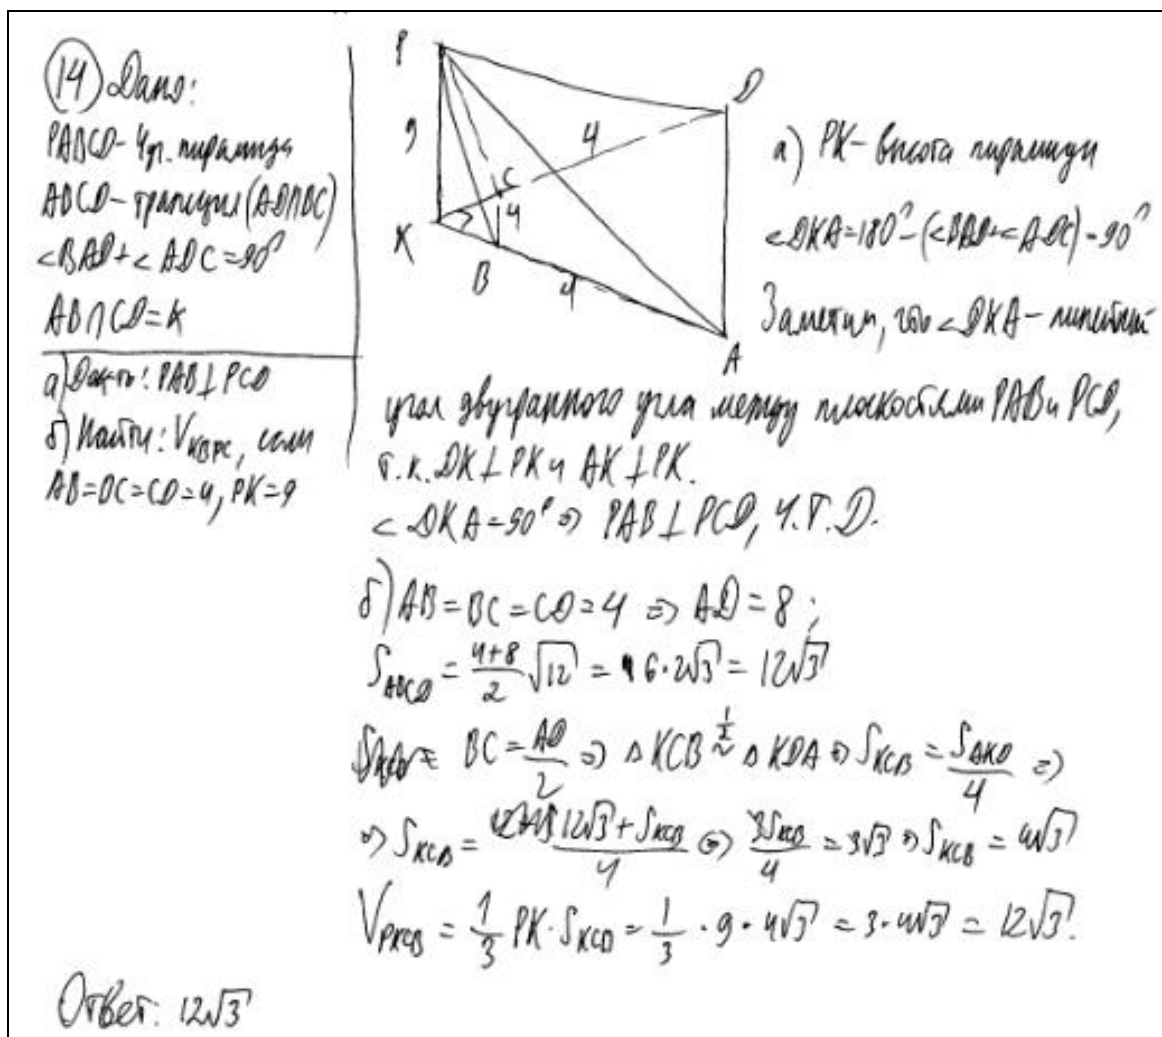 14) Дано:
PABCD - 4уг. пирамида
ABCD - трапеция (AD∩BC)
∠BAD + ∠ADC = 90°
AB∩CD = K
а) Док-ть: PAB ⊥ PCD
б) Найти: V_KBPC, если
AB = BC = CD = 4, PK = 9
P
D
9
4
C
K
4
B
4
A
а) PK - высота пирамиды
∠DKA = 180° - (∠BAD + ∠ADC) = 90°
Заметим, что ∠DKA - линейный
угол двугранного угла между плоскостями PAB и PCD,
т.к. DK ⊥ PK и AK ⊥ PK.
∠DKA = 90° ⇒ PAB ⊥ PCD, ч.т.д.
б) AB = BC = CD = 4 ⇒ AD = 8;
S_ABCD = (4+8)/2 √12 = 6·2√3 = 12√3
BC = AD/2 ⇒ △KCB ~ (1/2) △KDA ⇒ S_KCB = S_AKD/4 ⇒
⇒ S_KCB = (12√3 + S_KCB)/4 ⇒ 3S_KCB/4 = 3√3 ⇒ S_KCB = 4√3
V_PKCB = 1/3 PK · S_KCB = 1/3 · 9 · 4√3 = 3·4√3 = 12√3.
Ответ: 12√3